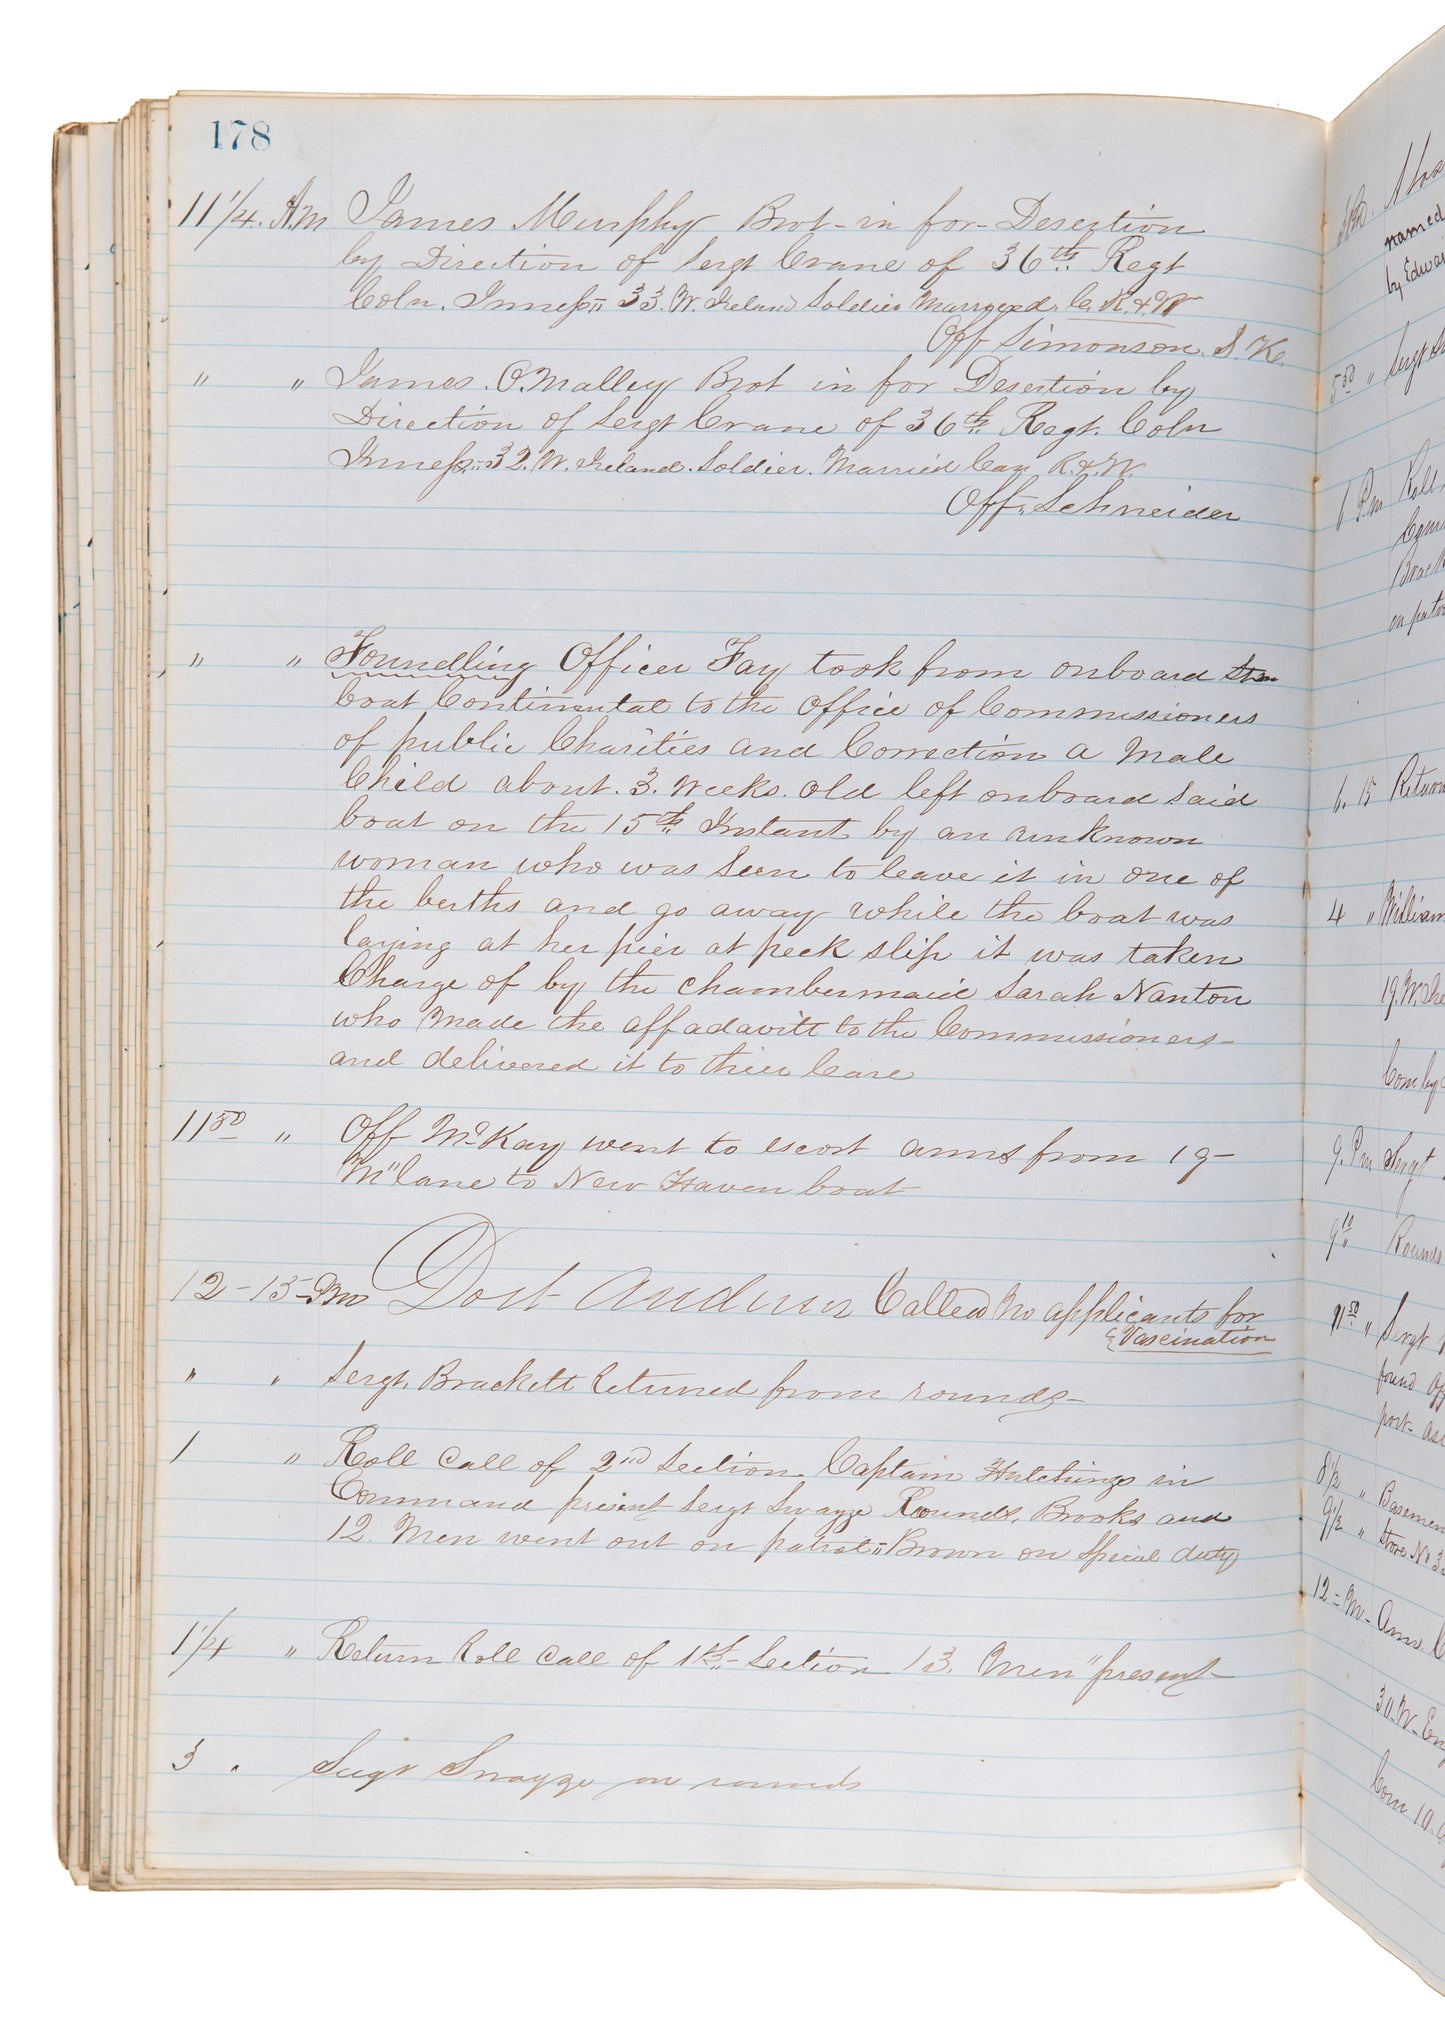 178
11 1/4. A.M James Murphy Brot in for Desertion
by Direction of Sergt Crane of 36th Regt
Coln. Inness 33. W. Ireland Soldier Marryed. C. R. & W
Off Simonson. S. K.
" " James. O.Malley Brot in for Desertion by
Direction of Sergt Crane of 36th Regt. Coln
Inness. 32. W. Ireland. Soldier. Married Can R. & W.
Off. Schneider
" " Foundling Officer Fay took from onboard Stm
boat Continental to the Office of Commissioners
of public Charities and Correction a Male
Child about. 3. Weeks. old left onboard Said
boat on the 15th Instant by an unknown
woman who was Seen to leave it in one of
the berths and go away while the boat was
laying at her pier at peck slip it was taken
Charge of by the chambermaid Sarah Nanton
who Made the affadavitt to the Commissioners-
and delivered it to their Care
11 50 " Off McKay went to escort arms from 19-
M" lane to New Haven boat
12-15- Pm Doct Called No applicants for
Vascination
" " Sergt. Brackett Returned from rounds-
1 " Roll Call of 2nd Section. Captain Hutchings in
Command present Sergt Swayze Rounds, Brooks and
12. Men went out on patrol = Brown on Special duty
1 1/4 " Return Roll Call of 1st Section 13. Men present
3 " Sergt Swayze on rounds
named
by Edwa
5 30 " Sergt
6 Pm Roll
on patro
6. 15 Return
4 " William
19. W.
Com by
9. Pm Sergt
9 10 " Rounds
11 50 " Sergt
found Off
post-
8 1/2 " Basemen
9 1/2 " Store No 3
12 = M-
30 W- Eng
Com 10